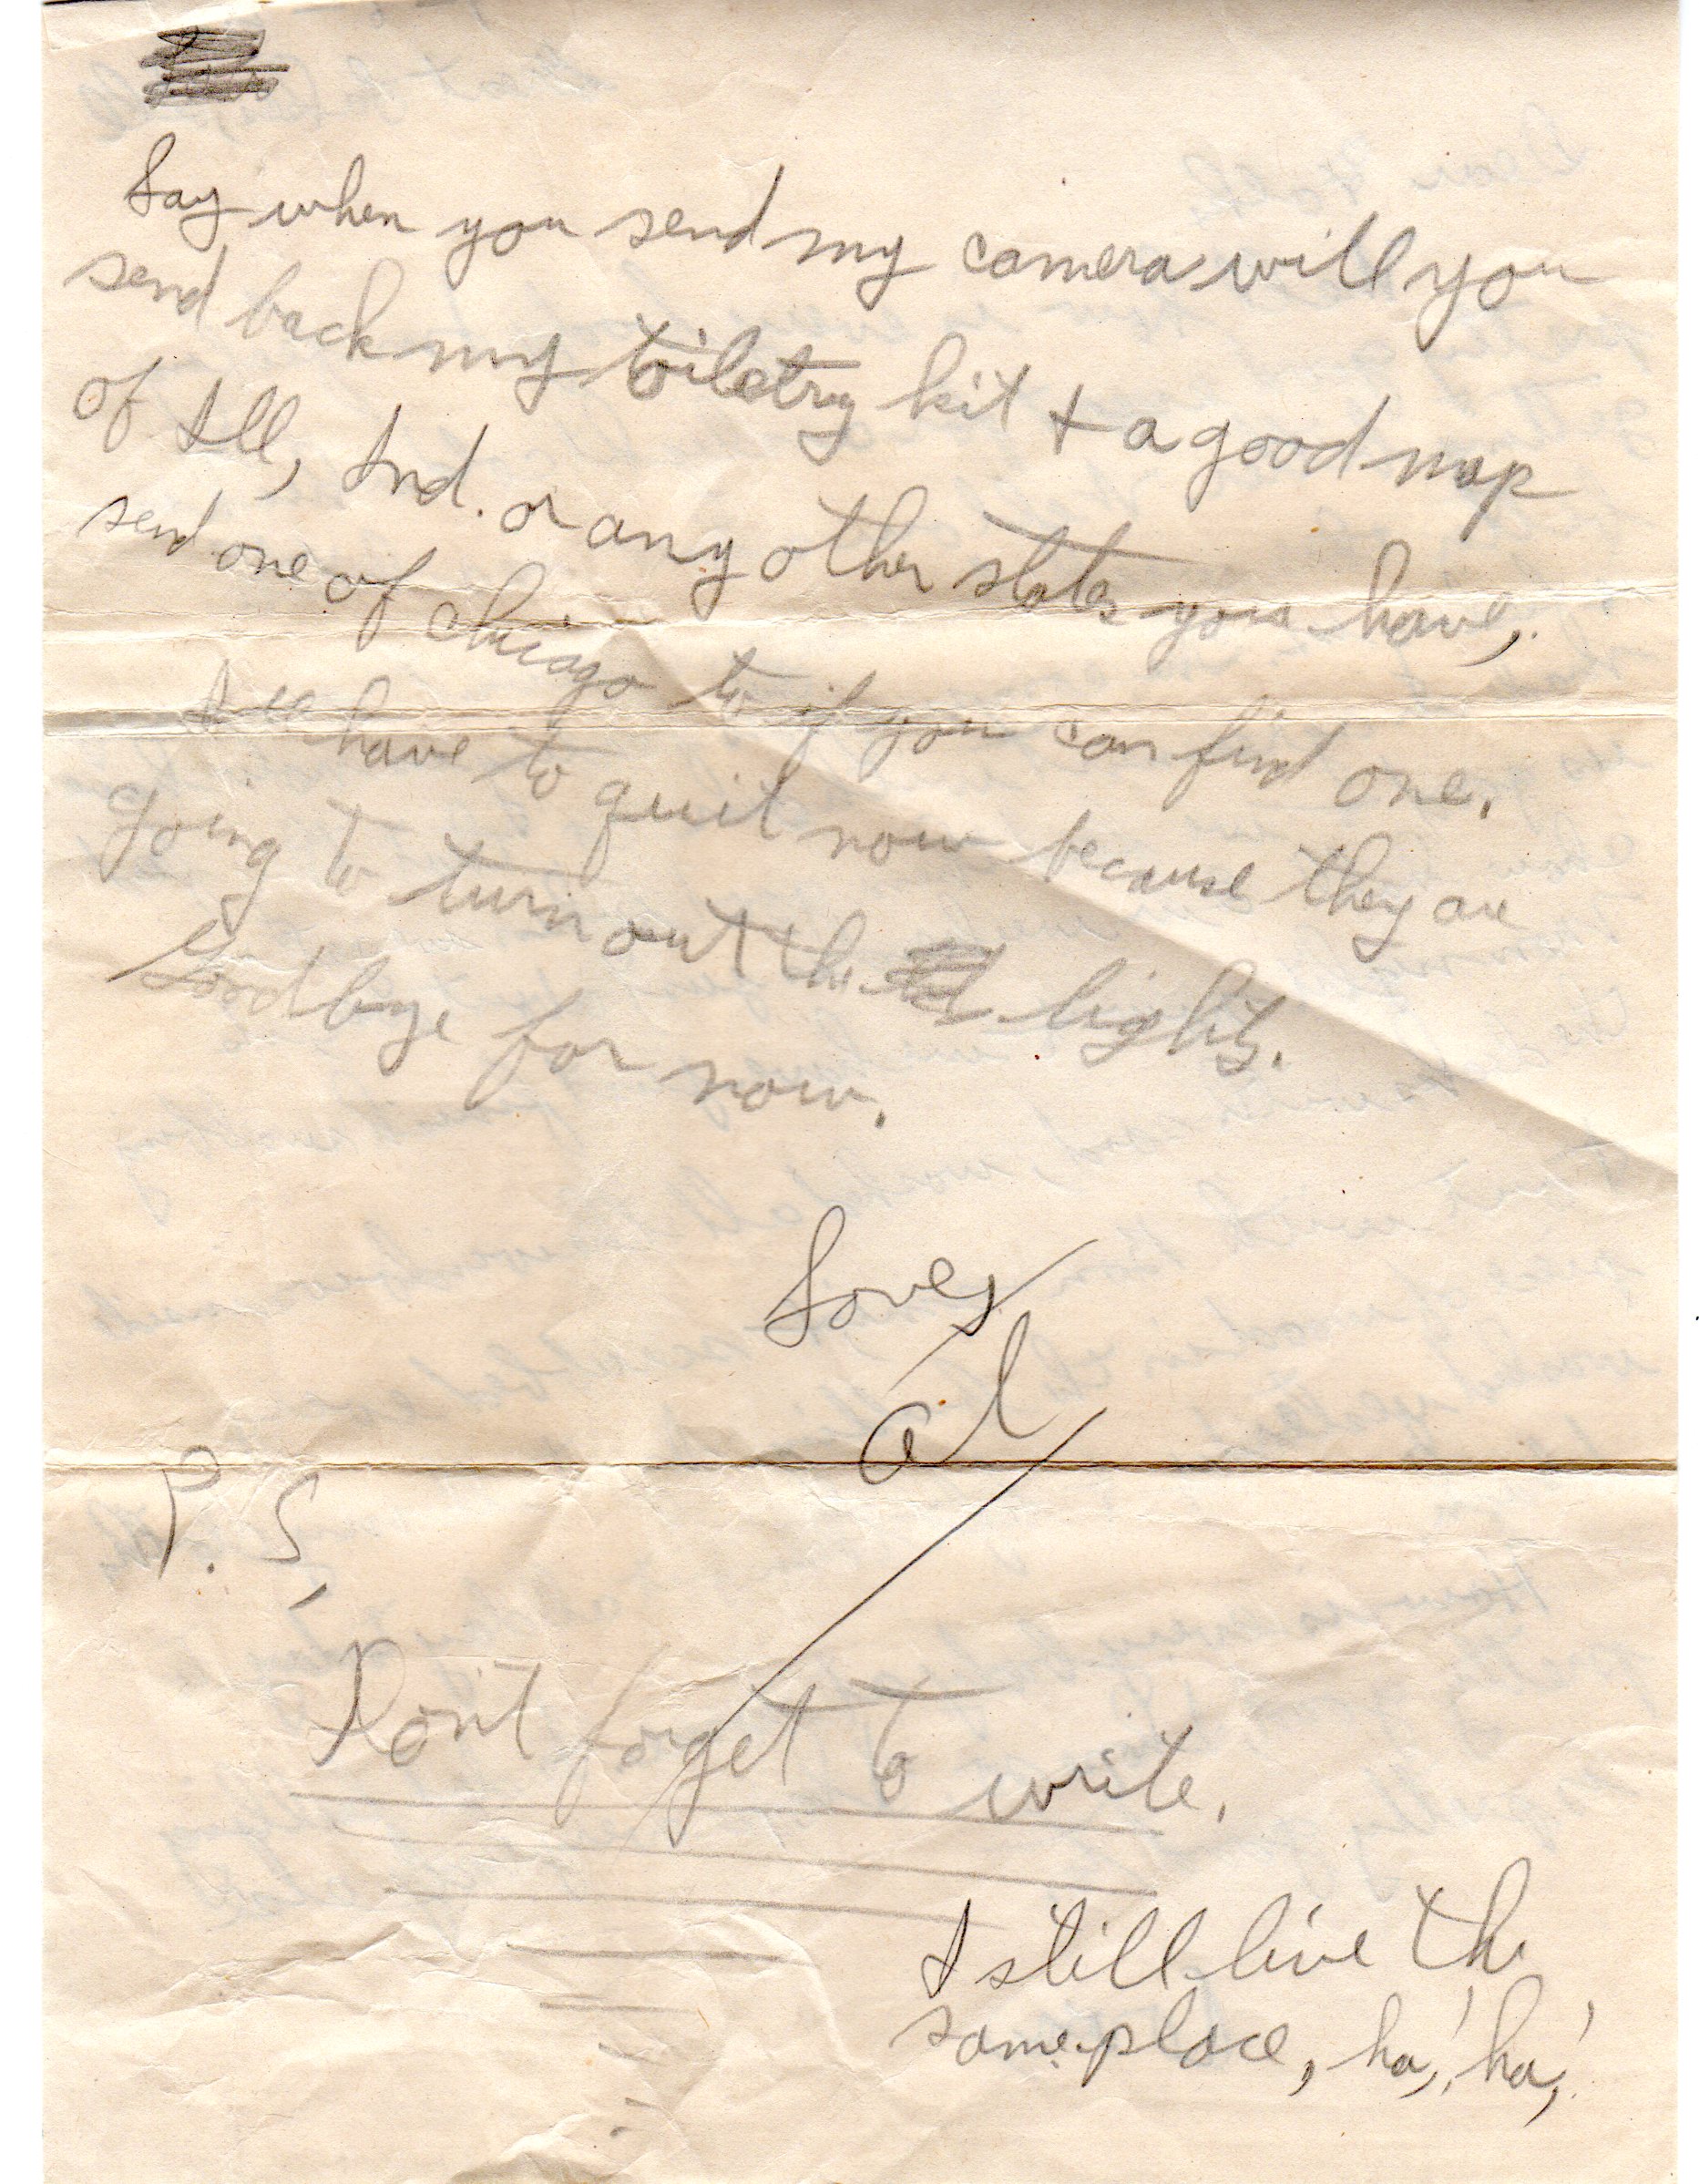 Say when you send my camera will you
send back my toiletry kit + a good map
of Ill, Ind. or any other states you have,
send one of Chicago to if you can find one.
I'll have to quit now because they are
going to turn out the lights.
Goodbye for now.
Love,
Al
P.S,
Don't forget to write.
I still live the
same place, ha,! ha,!